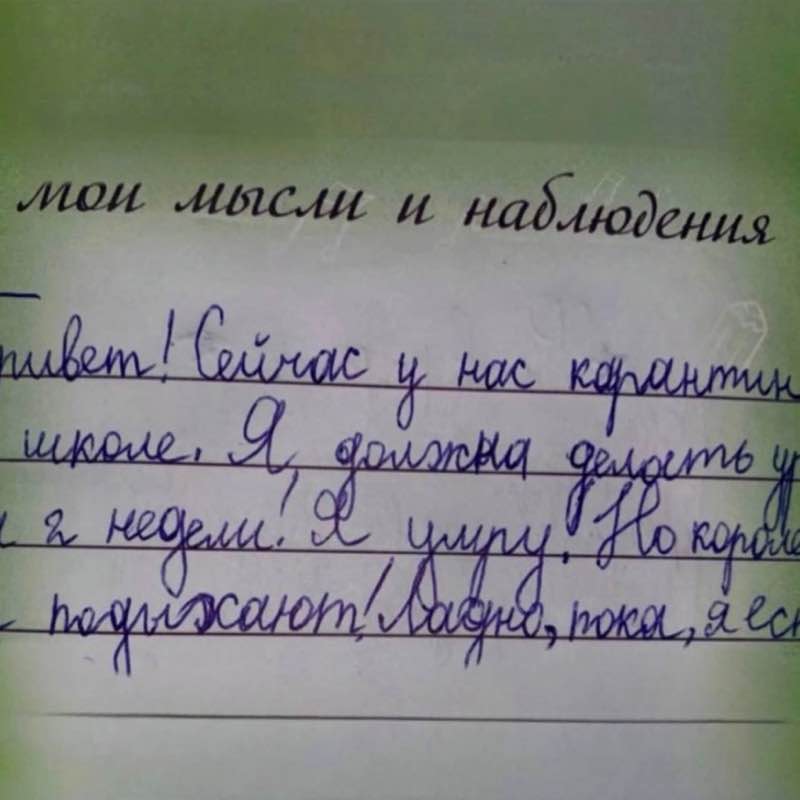 мои мысли и наблюдения
ривет! Сейчас у нас карантин
школе. Я должна делать ур
2 недели! Я умру! Но короле
подыхают! Ладно, пока, я